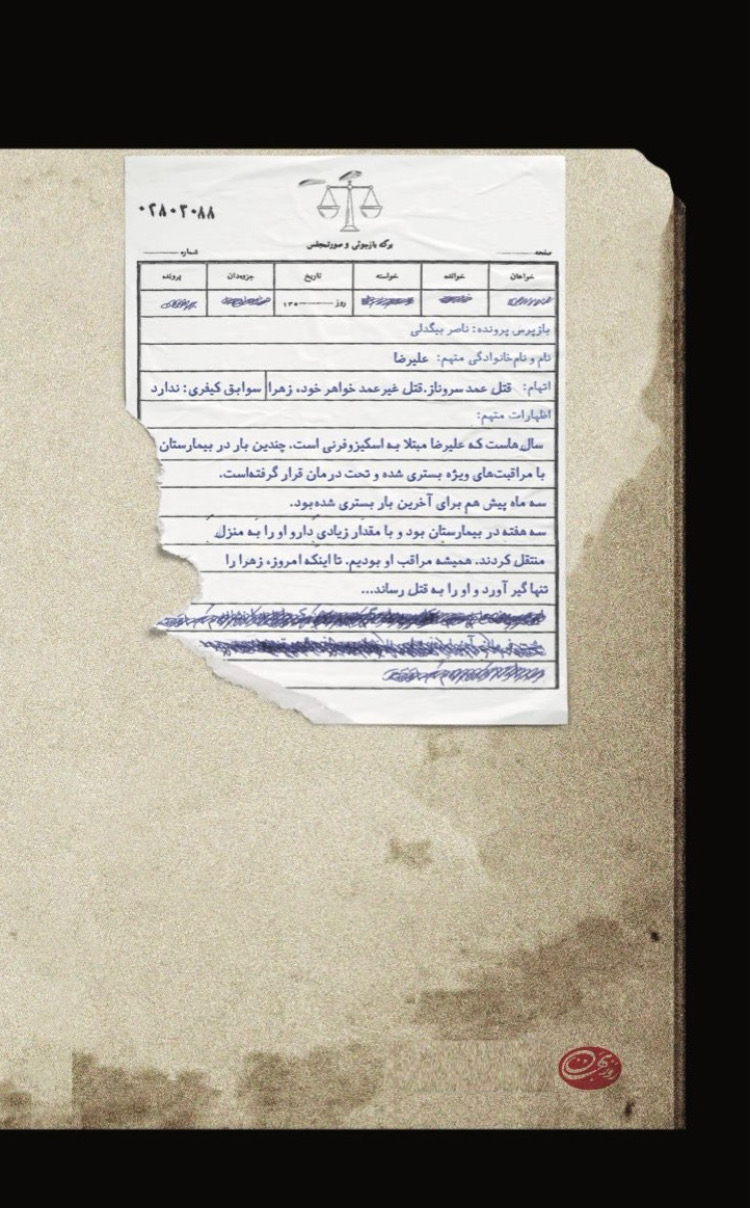 ۰۲۸۰۳۰۸۸
برگه بازجوئی و صورتمجلس
صفحه شماره
خواهان خوانده خواسته تاریخ جزوه‌دان پرونده
روز ۱۳۸
بازپرس پرونده: ناصر بیگدلی
نام و نام‌خانوادگی متهم: علیرضا
اتهام: قتل عمد سروناز، قتل غیرعمد خواهر خود، زهرا سوابق کیفری: ندارد
اظهارات متهم:
سال‌هاست که علیرضا مبتلا به اسکیزوفرنی است. چندین بار در بیمارستان
با مراقبت‌های ویژه بستری شده و تحت درمان قرار گرفته‌است.
سه ماه پیش هم برای آخرین بار بستری شده‌بود.
سه هفته در بیمارستان بود و با مقدار زیادی دارو او را به منزل
منتقل کردند. همیشه مراقب او بودیم. تا اینکه امروز، زهرا را
تنها گیر آورد و او را به قتل رساند...